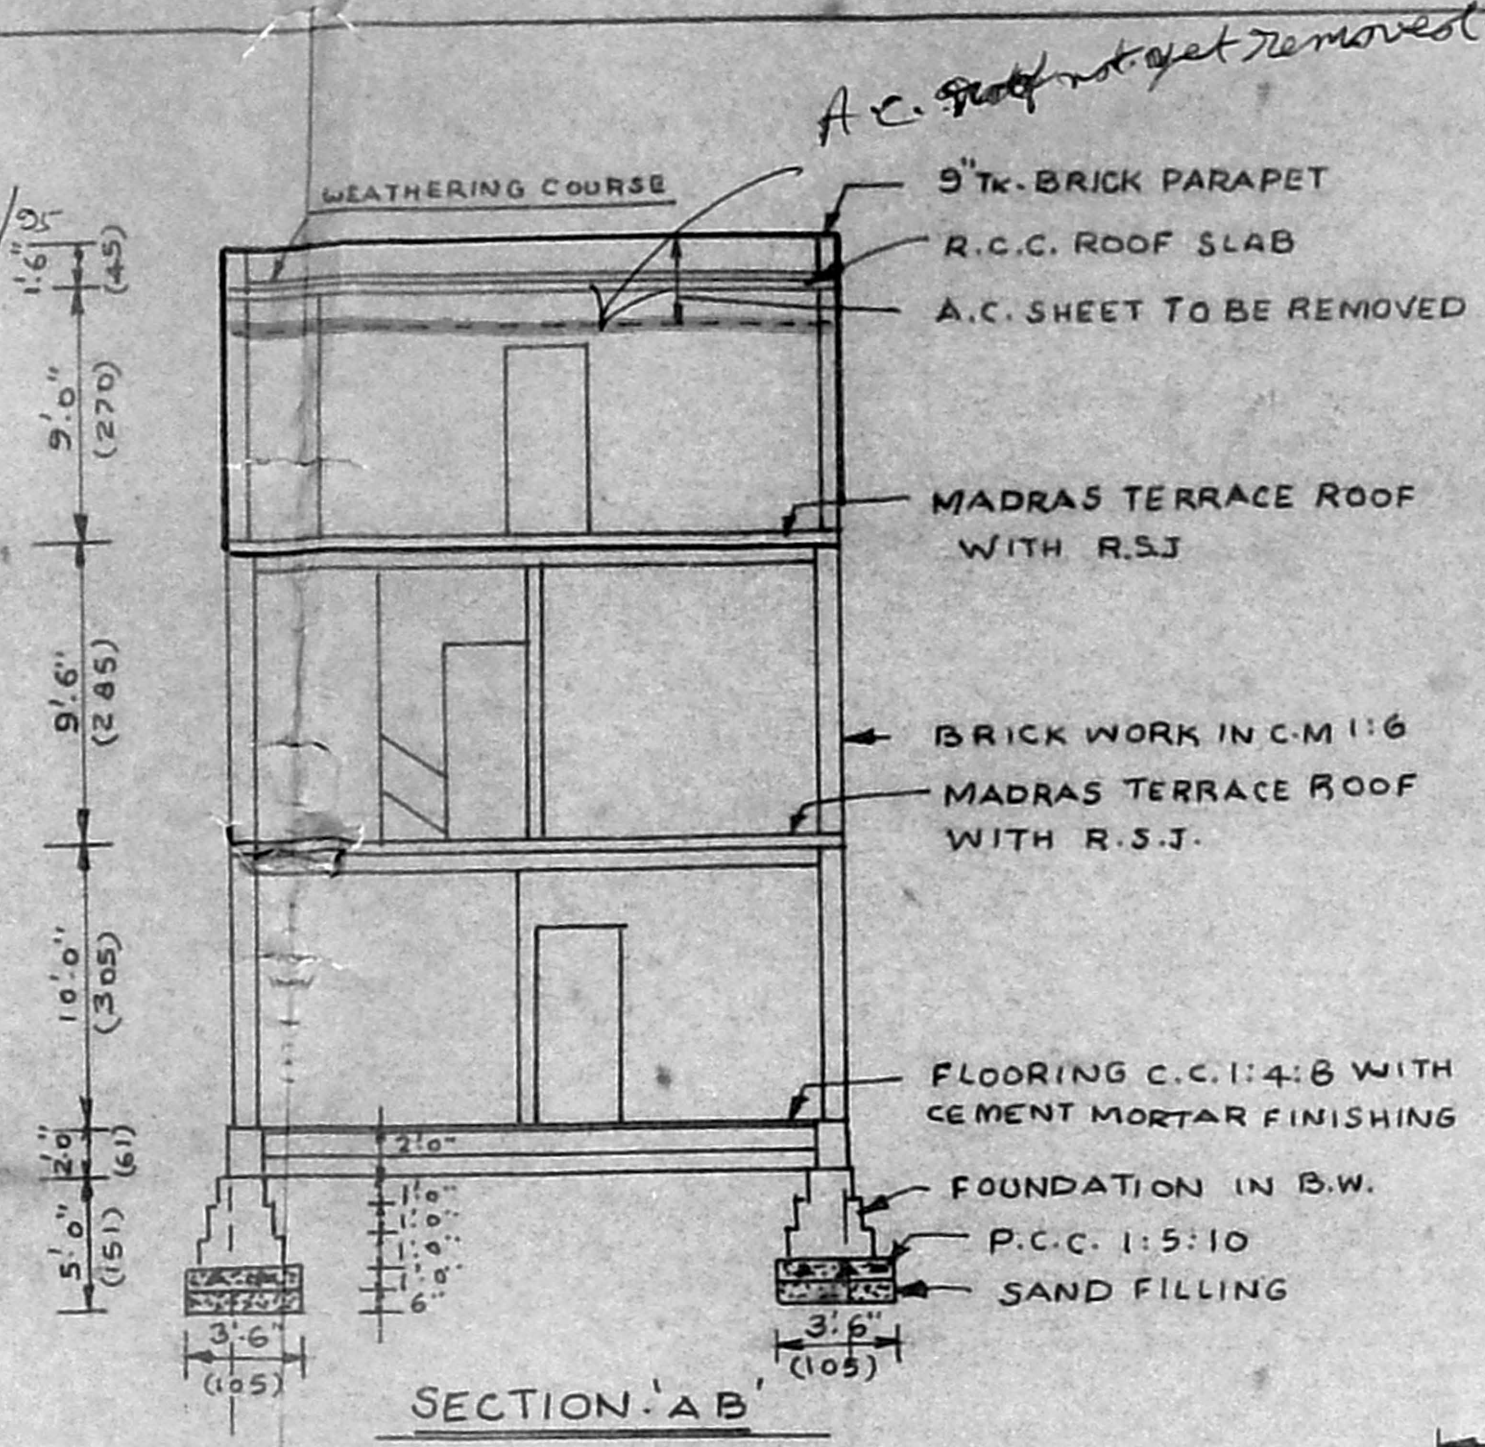 A.C. roof not yet removed
WEATHERING COURSE
9" TK. BRICK PARAPET
R.C.C. ROOF SLAB
A.C. SHEET TO BE REMOVED
MADRAS TERRACE ROOF
WITH R.S.J
BRICK WORK IN C.M 1:6
MADRAS TERRACE ROOF
WITH R.S.J.
FLOORING C.C. 1:4:8 WITH
CEMENT MORTAR FINISHING
FOUNDATION IN B.W.
P.C.C. 1:5:10
SAND FILLING
/95
1'.6"
(45)
9'.0"
(270)
9'.6"
(285)
10'.0"
(305)
2'.0"
(61)
5'.0"
(151)
2'.0"
1'.0"
1'.0"
1'.0"
1'.0"
6"
3'.6"
(105)
3'.6"
(105)
SECTION.'AB'